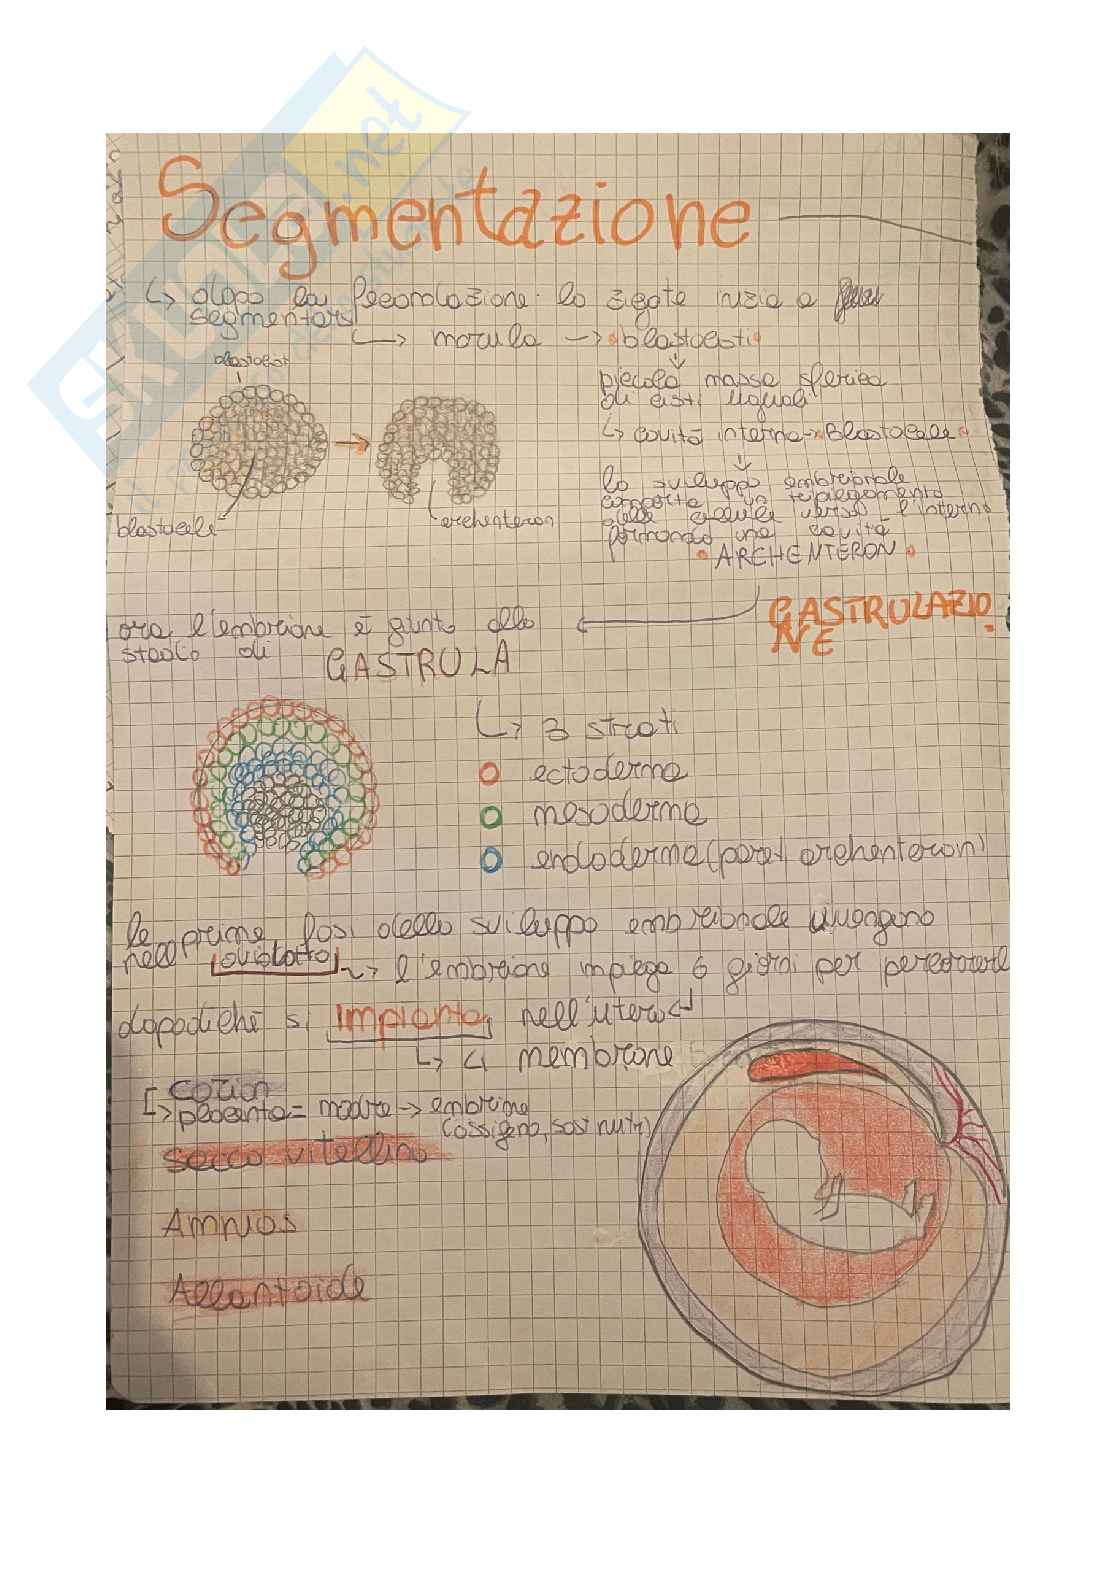 Segmentazione
↳ dopo la fecondazione lo zigote inizia a
segmentarsi
↳ morula → blastocisti
blastocisti
piccola massa sferica
di cisti uguali
↳ cavità interna → Blastocele
lo sviluppo embrionale
comporta un ripiegamento
delle cellule verso l'interno
formando una cavità
ARCHENTERON
blastocele
archenteron
GASTRULAZIO
NE
ora l'embrione è giunto allo
stadio di
GASTRULA
↳ 3 strati
ectoderma
mesoderma
endoderma (pareti archenteron)
le prime fasi dello sviluppo embrionale avvengono
nell' ovidotto → l'embrione impiega 6 giorni per percorrere
dopodiché si impianta nell'utero
↳ 4 membrane
corion
placenta = madre → embrione
(ossigeno, sost nutr)
sacco vitellino
Amnios
Allantoide
SKUOLA.net